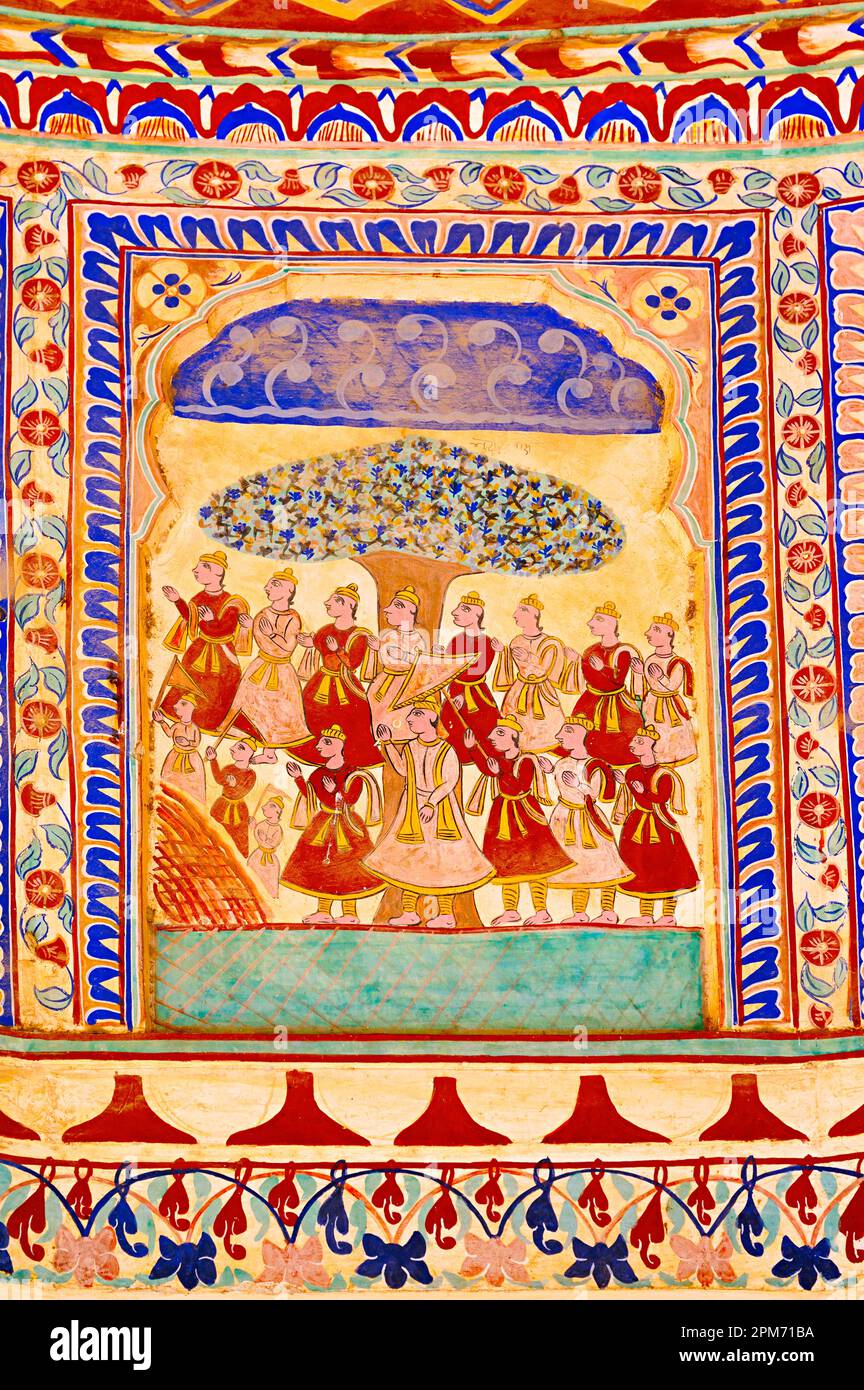 alamy
a
a
Image ID: 2PM71BA
www.alamy.com